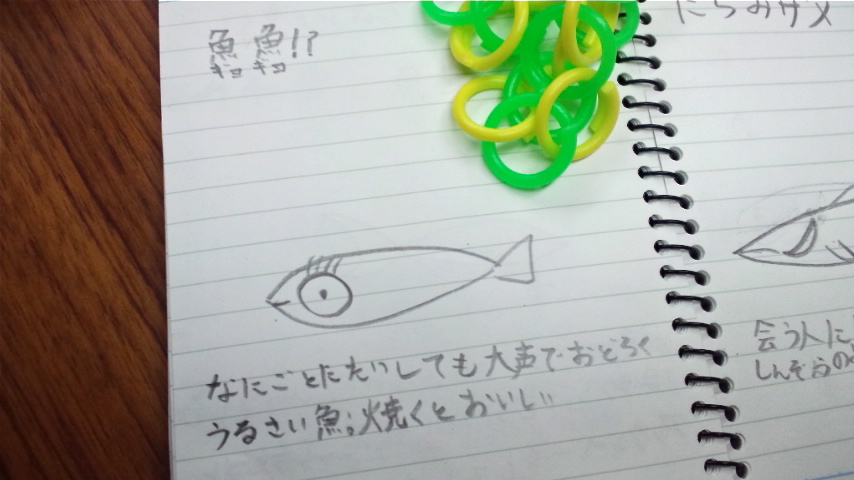 魚魚!?
ギョギョ
なにごとにたいしても大声でおどろく
うるさい魚。焼くとおいしい
にらみザメ
会う人に
しんぞうの